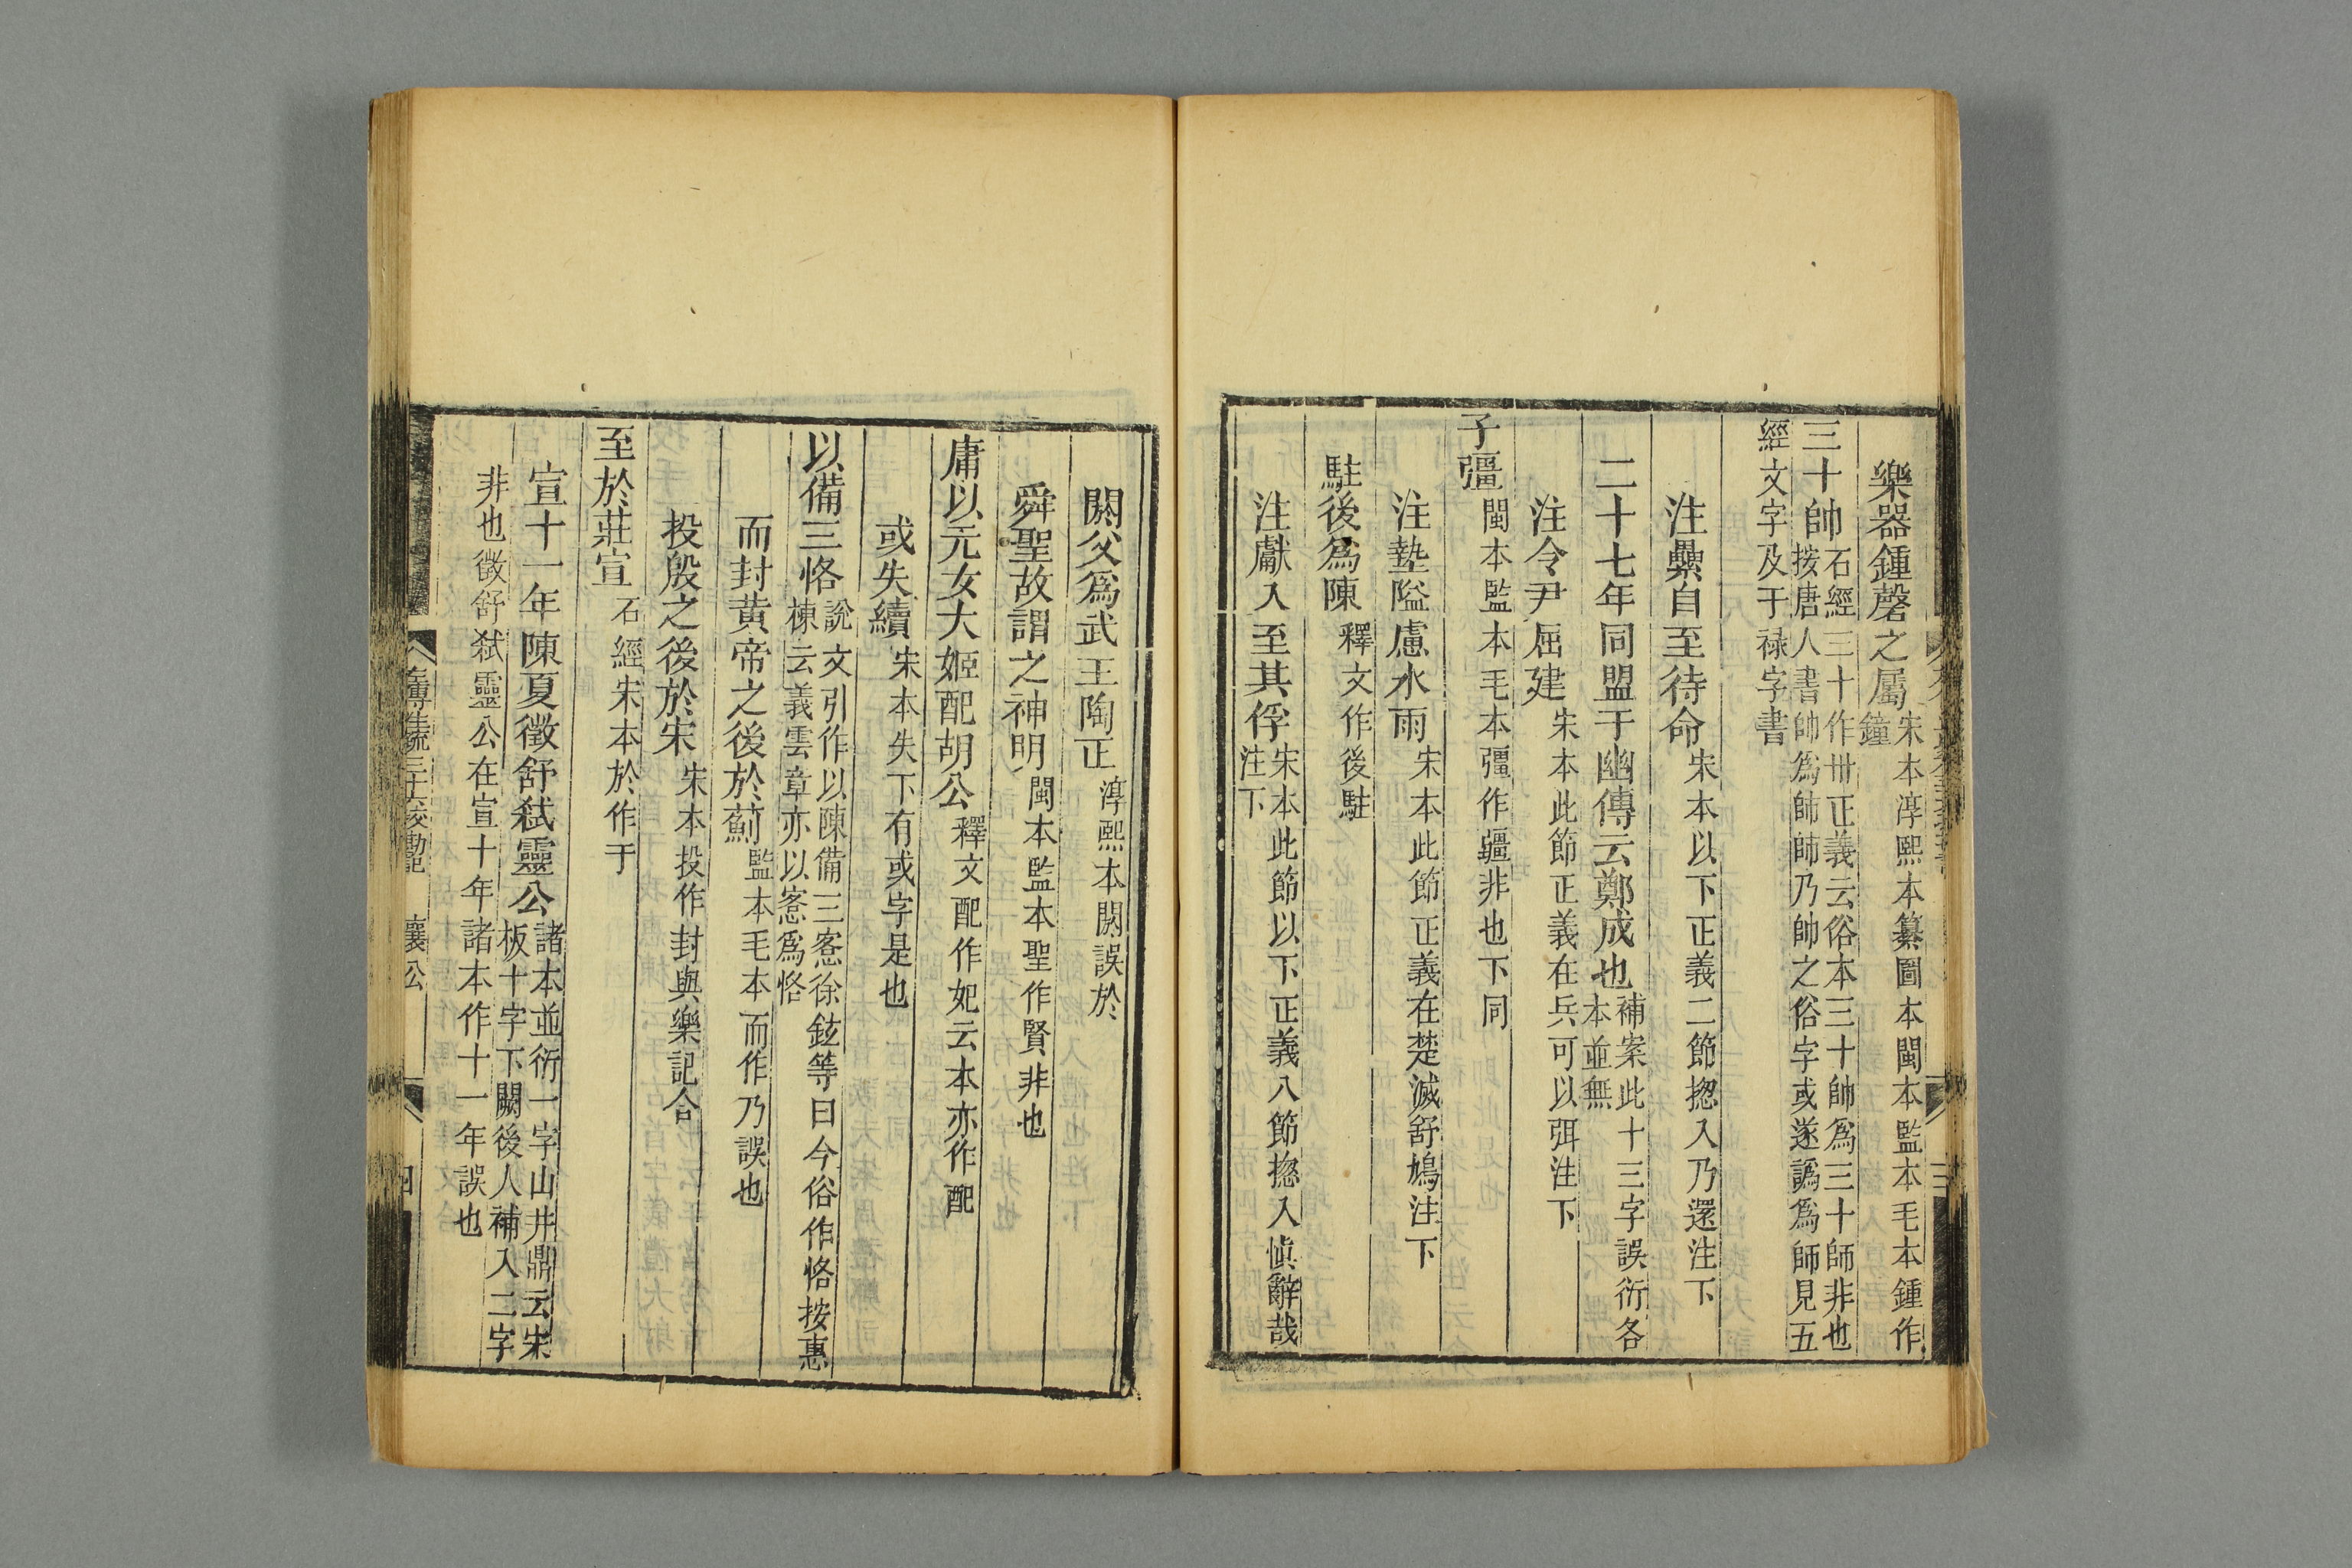 樂器鍾磬之屬宋本淳熙本纂圖本閩本監本毛本鍾作鐘
三十帥石經三十作卅正義云俗本三十帥爲三十師非也按唐人書帥爲師師乃帥之俗字或遂譌爲師見五
經文字及干祿字書
注纍自至待命宋本以下正義二節揔入乃還注下
二十七年同盟于幽傳云鄭成也補案此十三字誤衍各本並無
注令尹屈建宋本此節正義在兵可以弭注下
子彊閩本監本毛本彊作疆非也下同
注墊隘慮水雨宋本此節正義在楚滅舒鳩注下
駐後爲陳釋文作後駐
注獻入至其俘宋本此節以下正義八節揔入愼辭哉注下
閼父爲武王陶正淳熙本閼誤於
舜聖故謂之神明閩本監本聖作賢非也
庸以元女大姬配胡公釋文配作妃云本亦作配
或失續宋本失下有或字是也
以備三恪說文引作以陳備三愙徐鉉等曰今俗作恪按惠棟云義雲章亦以愙爲恪
而封黃帝之後於薊監本毛本而作乃誤也
投殷之後於宋宋本投作封與樂記合
至於莊宣石經宋本於作于
宣十一年陳夏徵舒弑靈公諸本並衍一字山井鼎云宋板十字下闕後人補入二字
非也徵舒弑靈公在宣十年諸本作十一年誤也
襄公